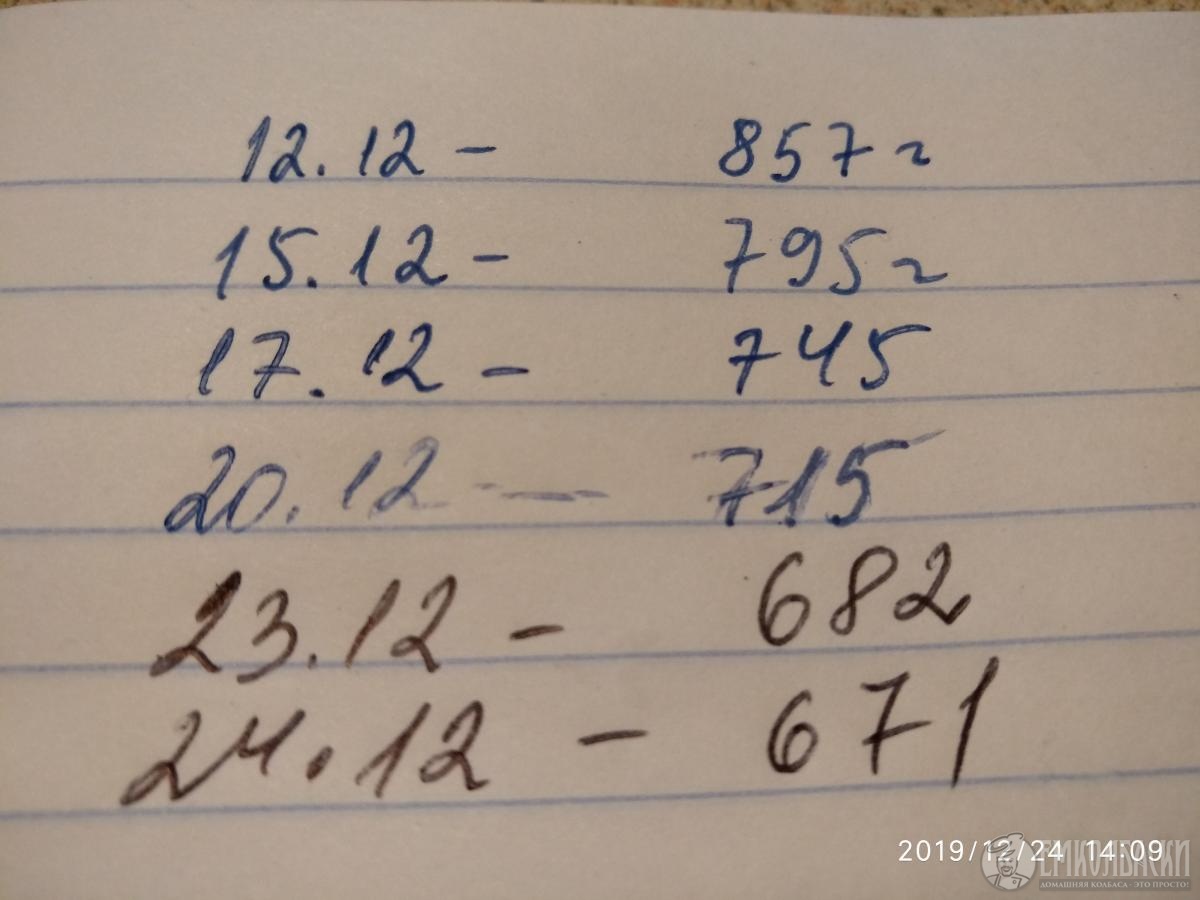 12.12 - 857г
15.12 - 795г
17.12 - 745
20.12 - 715
23.12 - 682
24.12 - 671
2019/12/24 14:09
ЕМКОЛБАСКИ
ДОМАШНЯЯ КОЛБАСА - ЭТО ПРОСТО!